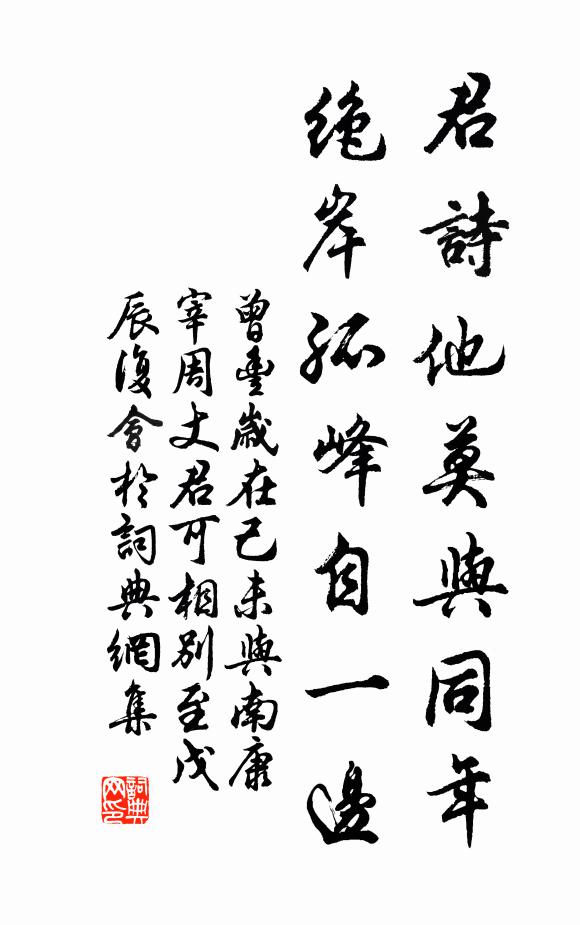 君詩他莫與同年
絶岸孤峰自一邊
曾豐歲在己未與南康
宰周丈君可相別至戊
辰復會於詞典網集
詞典
网印